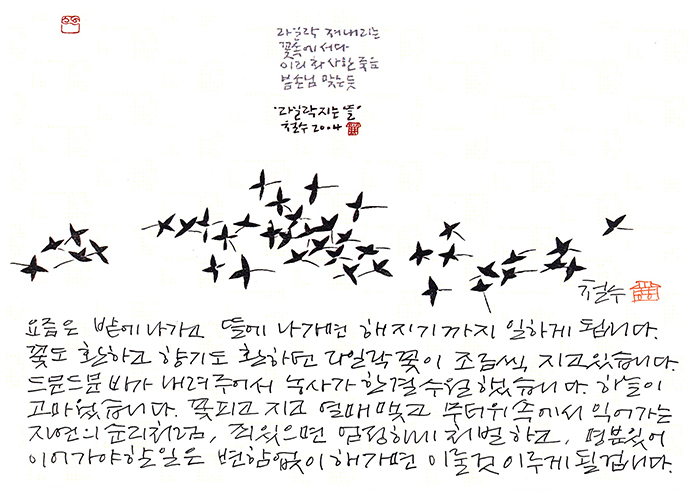 라일락 져 내리는
꽃속에 서다
이리 화사한 죽음
봄손님 맞는 듯
"라일락 지는 뜰"
철수 2004
철수
요즘은 밭에 나가고 뜰에 나가면 해지기까지 일하게 됩니다.
꽃도 환하고 향기도 환하던 라일락꽃이 조금씩 지고있습니다.
드문드문 비가 내려주어서 농사가 한결 수월했습니다. 하늘이
고마웠습니다. 꽃피고 지고 열매 맺고 무더위 속에서 익어가는
자연의 순리처럼, 죄있으면 엄정하게 처벌하고, 명분있어
이어가야할 일은 변함없이 해가면 이룰것 이루게 될겁니다.